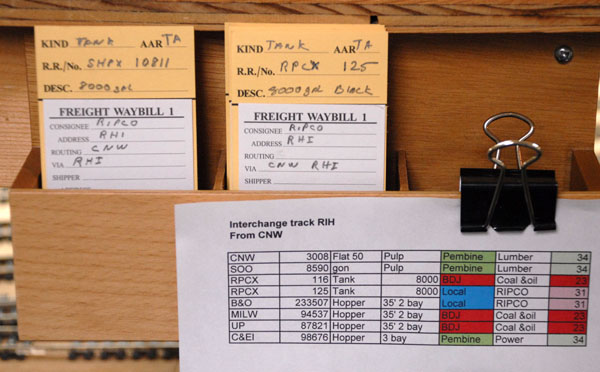 KIND TANK AAR TA
R.R./No. SHPX 10811
DESC. 8000 gal
FREIGHT WAYBILL 1
CONSIGNEE RIPCO
ADDRESS RHI
ROUTING CNW
VIA RHI
SHIPPER
KIND TANK AAR TA
R.R./No. RPCX 125
DESC. 8000 gal Black
FREIGHT WAYBILL 1
CONSIGNEE RIPCO
ADDRESS RHI
ROUTING
VIA CNW RHI
SHIPPER
Interchange track RIH
From CNW
CNW 3008 Flat 50 Pulp Pembine Lumber 34
SOO 8590 gon Pulp Pembine Lumber 34
RPCX 116 Tank 8000 BDJ Coal &oil 23
RPCX 125 Tank 8000 Local RIPCO 31
B&O 233507 Hopper 35' 2 bay Local RIPCO 31
MILW 94537 Hopper 35' 2 bay BDJ Coal &oil 23
UP 87821 Hopper 35' 2 bay BDJ Coal &oil 23
C&EI 98676 Hopper 3 bay Pembine Power 34